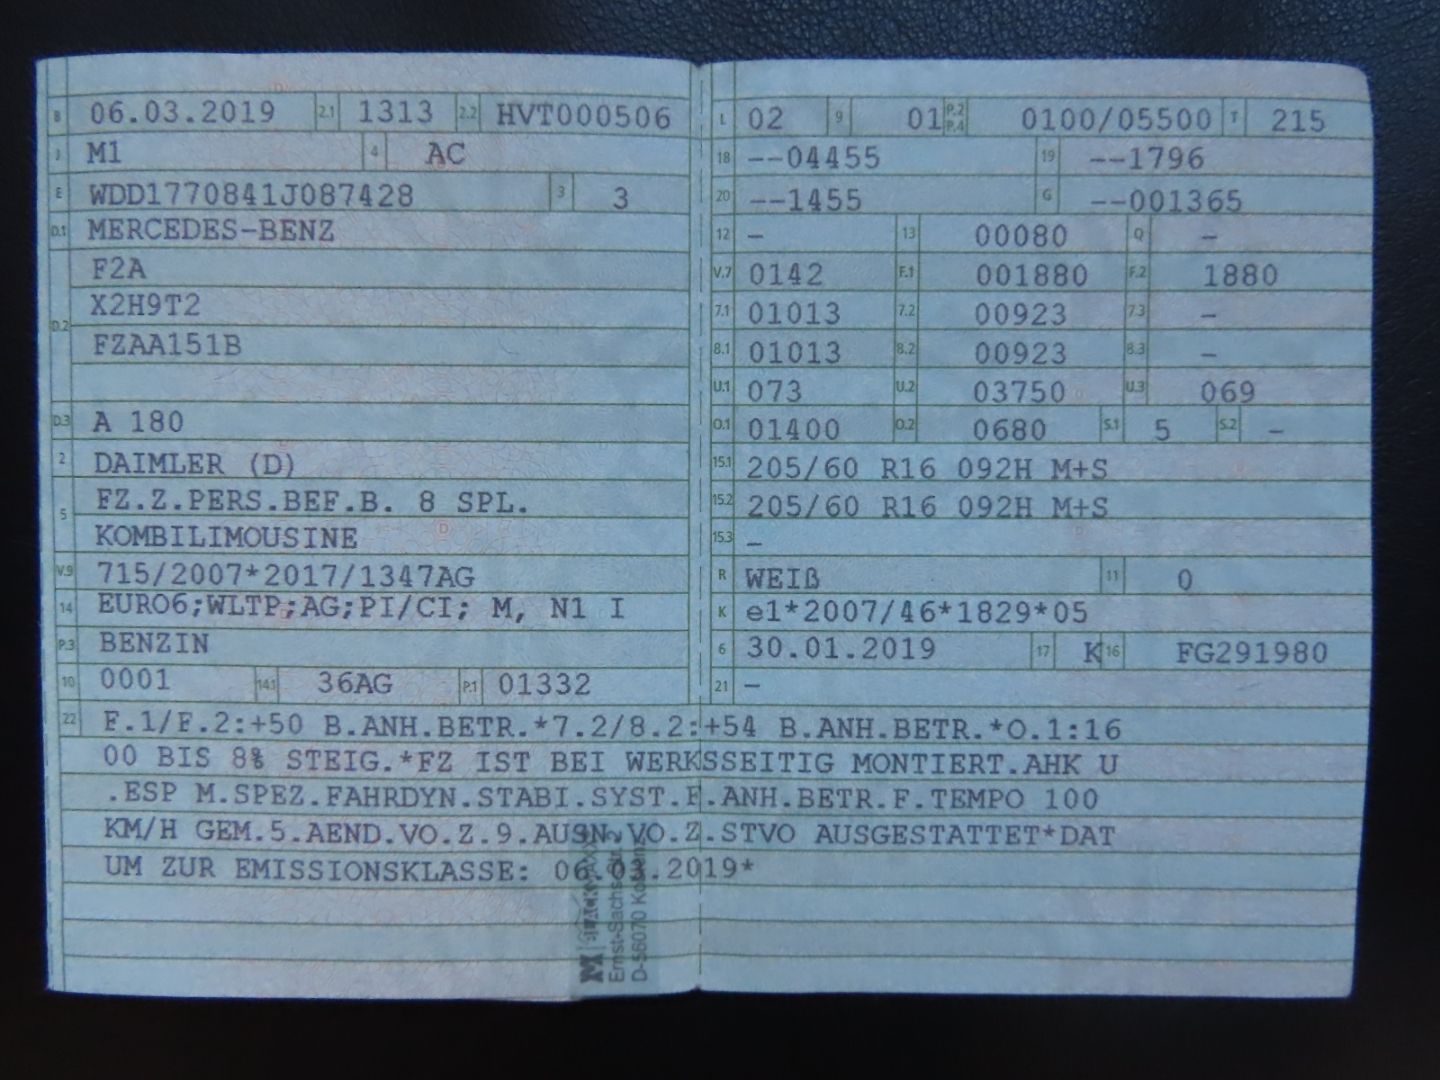 B 06.03.2019 2.1 1313 2.2 HVT000506
J M1 4 AC
E WDD1770841J087428 3 3
D.1 MERCEDES-BENZ
F2A
X2H9T2
D.2
FZAA151B
D.3 A 180
2 DAIMLER (D)
FZ.Z.PERS.BEF.B. 8 SPL.
5
KOMBILIMOUSINE
V.9 715/2007*2017/1347AG
14 EURO6;WLTP;AG;PI/CI; M, N1 I
P.3 BENZIN
10 0001 14.1 36AG P.1 01332
L 02 9 01 P.2 P.4 0100/05500 T 215
18 --04455 19 --1796
20 --1455 G --001365
12 - 13 00080 Q -
V.7 0142 F.1 001880 F.2 1880
7.1 01013 7.2 00923 7.3 -
8.1 01013 8.2 00923 8.3 -
U.1 073 U.2 03750 U.3 069
O.1 01400 O.2 0680 S.1 5 S.2 -
15.1 205/60 R16 092H M+S
15.2 205/60 R16 092H M+S
15.3 -
R WEIß 11 0
K e1*2007/46*1829*05
6 30.01.2019 17 K 16 FG291980
21 -
22 F.1/F.2:+50 B.ANH.BETR.*7.2/8.2:+54 B.ANH.BETR.*O.1:16
00 BIS 8% STEIG.*FZ IST BEI WERKSSEITIG MONTIERT.AHK U
.ESP M.SPEZ.FAHRDYN.STABI.SYST.F.ANH.BETR.F.TEMPO 100
KM/H GEM.5.AEND.VO.Z.9.AUSN.VO.Z.STVO AUSGESTATTET*DAT
UM ZUR EMISSIONSKLASSE: 06.03.2019*
M
Ernst-Sachs-Str. 2
D-56070 Koblenz